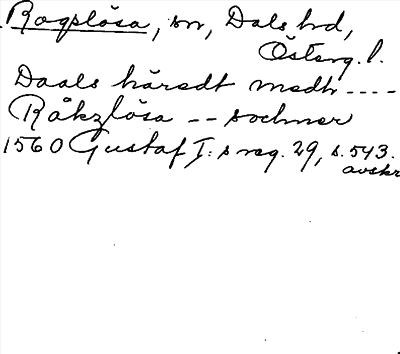 Rogslösa, sn, Dals hd,
Österg. l.
Daals häredt medh ----
Råkzlösa -- sochner
1560 Gustaf I:s reg. 29, s. 543.
avskr